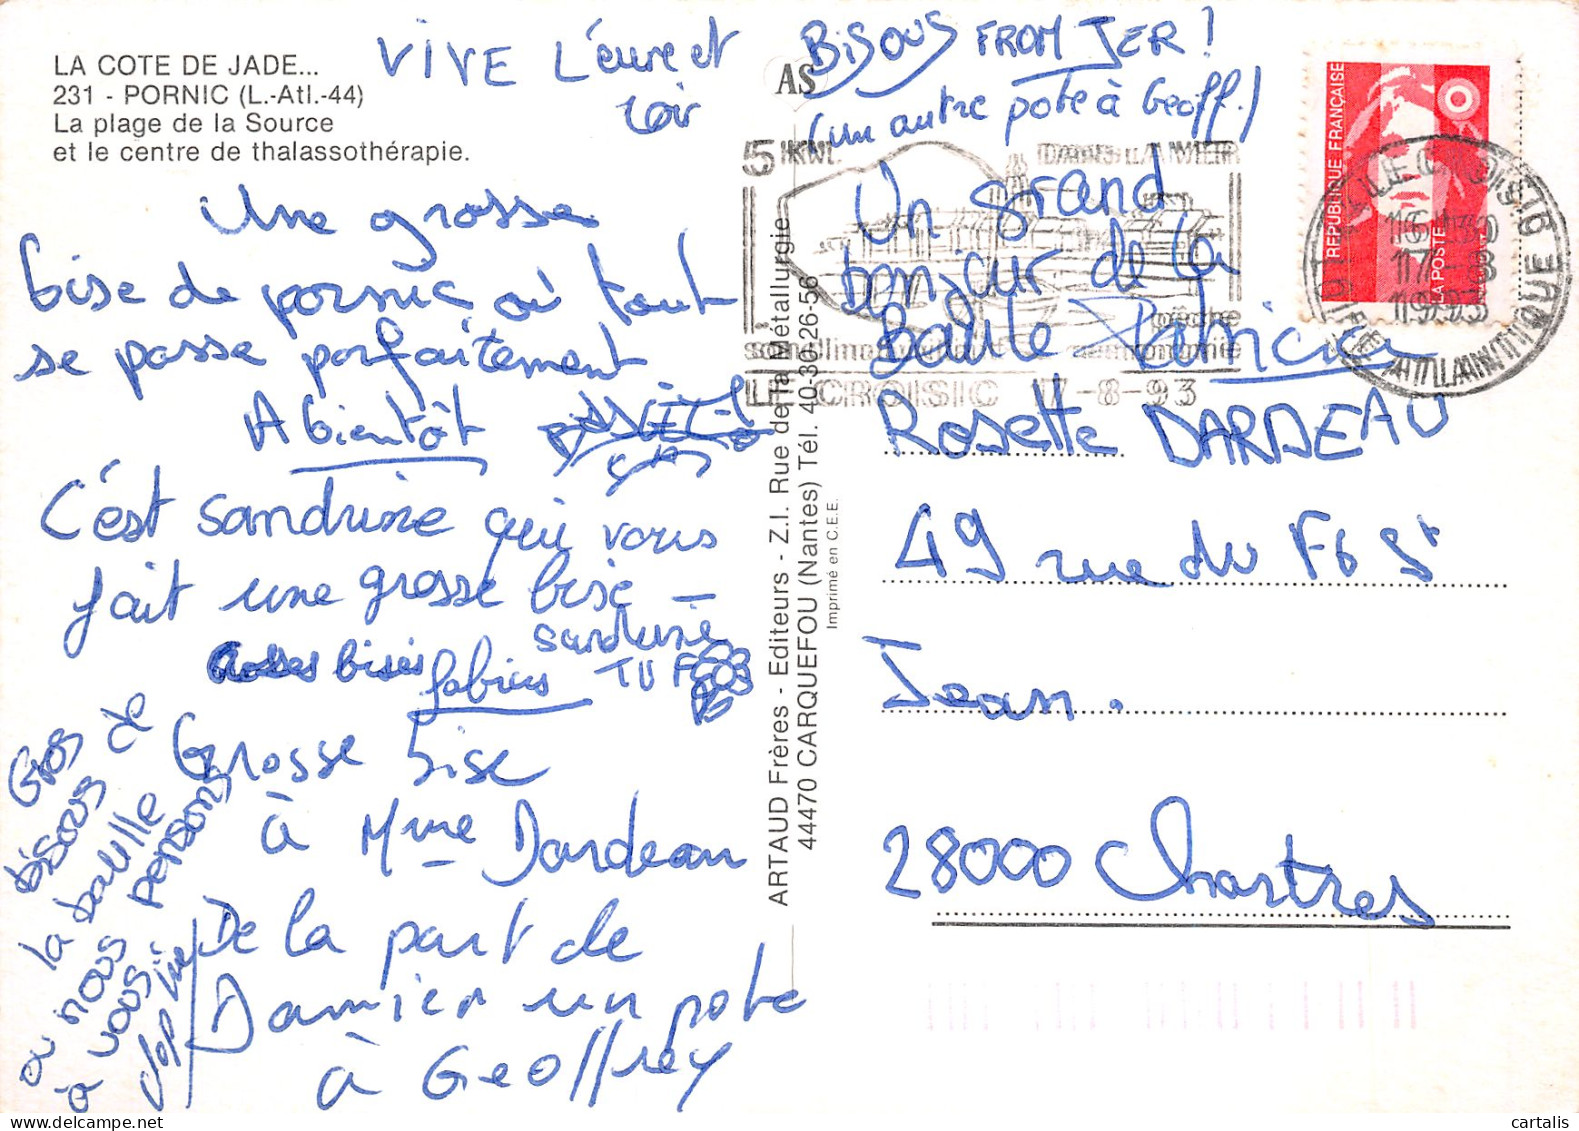 LA COTE DE JADE...
231 - PORNIC (L.-Atl.-44)
La plage de la Source
et le centre de thalassothérapie.
VIVE L'eure et
loir
Une grosse
bise de pornic où tout
se passe parfaitement
A bientôt
C'est sandrine qui vous
fait une grosse bise -
sandrine
Grosses bises fabrice
Grosse bise
à Mme Dardeau
De la part de
Damien un pote
à Geoffrey
Gros
bisous de
la baulle
ou nous pensons
à vous.
AS
BISOUS FROM JER !
(un autre pote à Geoff.)
Un grand
bonjour de la
Baule Patricia
Rosette DARDEAU
49 rue du Fb St
Jean.
28000 Chartres
ARTAUD Frères - Editeurs - Z.I. Rue de la Métallurgie
44470 CARQUEFOU (Nantes) Tél. 40-30-26-56
Imprimé en C.E.E.
REPUBLIQUE FRANÇAISE
LA POSTE
5 KM.
LE CROISIC 17-8-93
44 LE CROISIC
16H30
17-8
1993
LOIRE ATLANTIQUE
cartalis